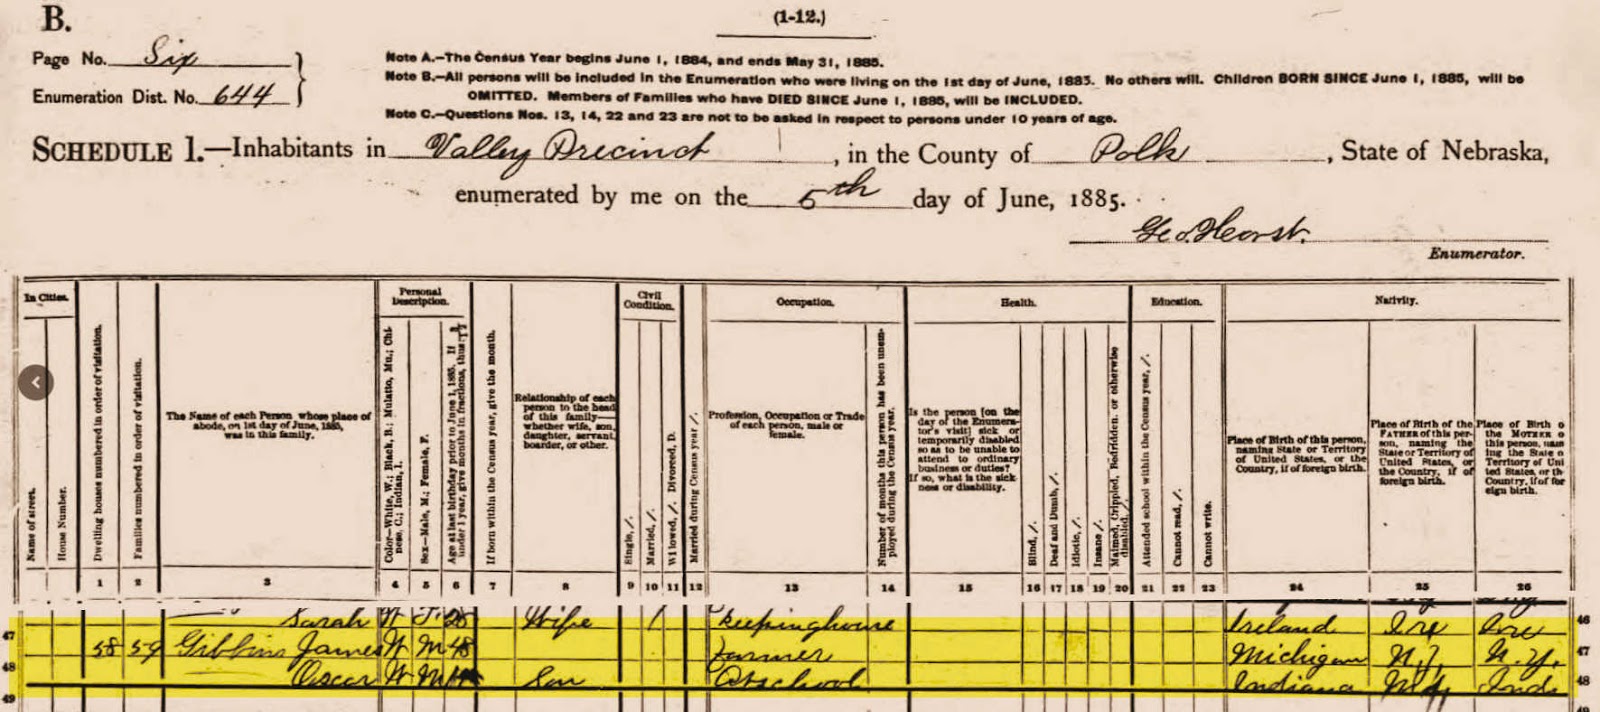 B.
(1-12.)
Page No. Six
Enumeration Dist. No. 644
Note A.—The Census Year begins June 1, 1884, and ends May 31, 1885.
Note B.—All persons will be included in the Enumeration who were living on the 1st day of June, 1885. No others will. Children BORN SINCE June 1, 1885, will be
OMITTED. Members of Families who have DIED SINCE June 1, 1885, will be INCLUDED.
Note C.—Questions Nos. 13, 14, 22 and 23 are not to be asked in respect to persons under 10 years of age.
SCHEDULE 1.—Inhabitants in Valley Precinct, in the County of Polk, State of Nebraska,
enumerated by me on the 5th day of June, 1885.
Geo. Hearst.
Enumerator.
In Cities.
Personal Description.
Civil Condition.
Occupation.
Health.
Education.
Nativity.
Name of street.
House Number.
Dwelling houses numbered in order of visitation.
Families numbered in order of visitation.
The Name of each Person whose place of abode, on 1st day of June, 1885, was in this family.
Color—White, W.; Black, B.; Mulatto, Mu.; Chinese, C.; Indian, I.
Sex—Male, M.; Female, F.
Age at last birthday prior to June 1, 1885. If under 1 year, give months in fractions, thus:
If born within the Census year, give the month.
Relationship of each person to the head of this family—whether wife, son, daughter, servant, boarder, or other.
Single, /.
Married, /.
Widowed, /. Divorced, D.
Married during Census year /.
Profession, Occupation or Trade of each person, male or female.
Number of months this person has been unemployed during the Census year.
Is the person [on the day of the Enumerator's visit] sick or temporarily disabled so as to be unable to attend to ordinary business or duties? If so, what is the sickness or disability.
Blind, /.
Deaf and Dumb, /.
Idiotic, /.
Insane, /.
Maimed, Crippled, Bedridden, or otherwise disabled, /.
Attended school within the Census year, /.
Cannot read, /.
Cannot write.
Place of Birth of this person, naming State or Territory of United States, or the Country, if of foreign birth.
Place of Birth of the FATHER of this person, naming the State or Territory of United States, or the Country, if of foreign birth.
Place of Birth o the MOTHER o this person, nam ing the State o Territory of Uni ted States, or th Country, if of for eign birth.
1 2 3 4 5 6 7 8 9 10 11 12 13 14 15 16 17 18 19 20 21 22 23 24 25 26
Sarah W F 28 Wife / Keepinghouse Ireland Ire Ire 46
47 58 59 Gibbins James W M 48 Farmer Michigan N.Y. 47
48 Oscar W M Son At school Indiana Ind 48
49 49